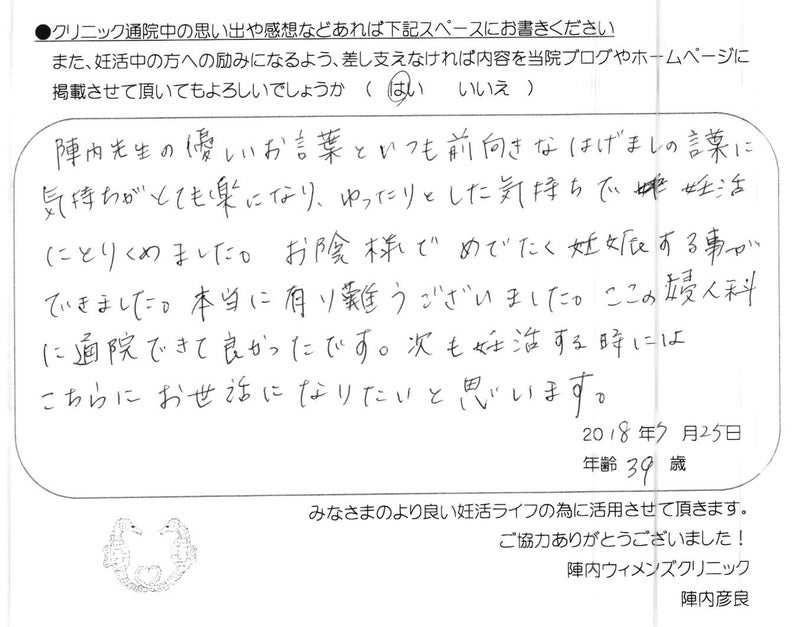 ●クリニック通院中の思い出や感想などあれば下記スペースにお書きください
また、妊活中の方への励みになるよう、差し支えなければ内容を当院ブログやホームページに
掲載させて頂いてもよろしいでしょうか （ はい いいえ ）
陣内先生の優しいお言葉といつも前向きなはげましの言葉に
気持ちがとても楽になり、ゆったりとした気持ちで 妊活
にとりくめました。お陰様でめでたく妊娠する事が
できました。本当に有り難うございました。ここの婦人科
に通院できて良かったです。次も妊活する時には
こちらにお世話になりたいと思います。
2018年7月25日
年齢 39 歳
みなさまのより良い妊活ライフの為に活用させて頂きます。
ご協力ありがとうございました！
陣内ウィメンズクリニック
陣内彦良